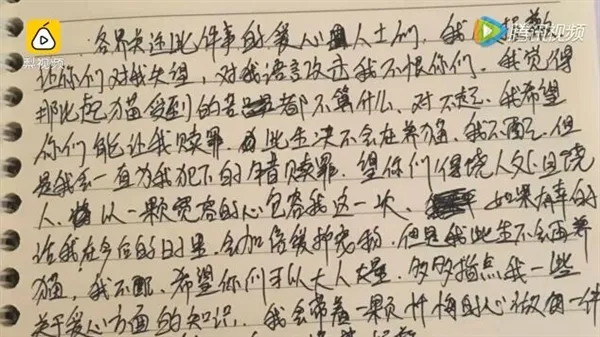 梨视频
腾讯视频
各界关注此件事的爱心人士们，我
让你们对我失望，对我语言攻击我不恨你们，我觉得
那比起猫受到的苦都不算什么，对不起，我希望
你们能让我赎罪，此生决不会在养猫，我不配，但
是我会一直为我犯下的错赎罪，望你们得饶人处且饶
人，以一颗宽容的心包容我这一次，如果有幸的
话我在今后的日里，会加倍爱护宠物，但是我此生不会再养
猫，我不配，希望你们可以大人大量，多多指点我一些
关于爱心方面的知识，我会带着一颗忏悔的心做每一件